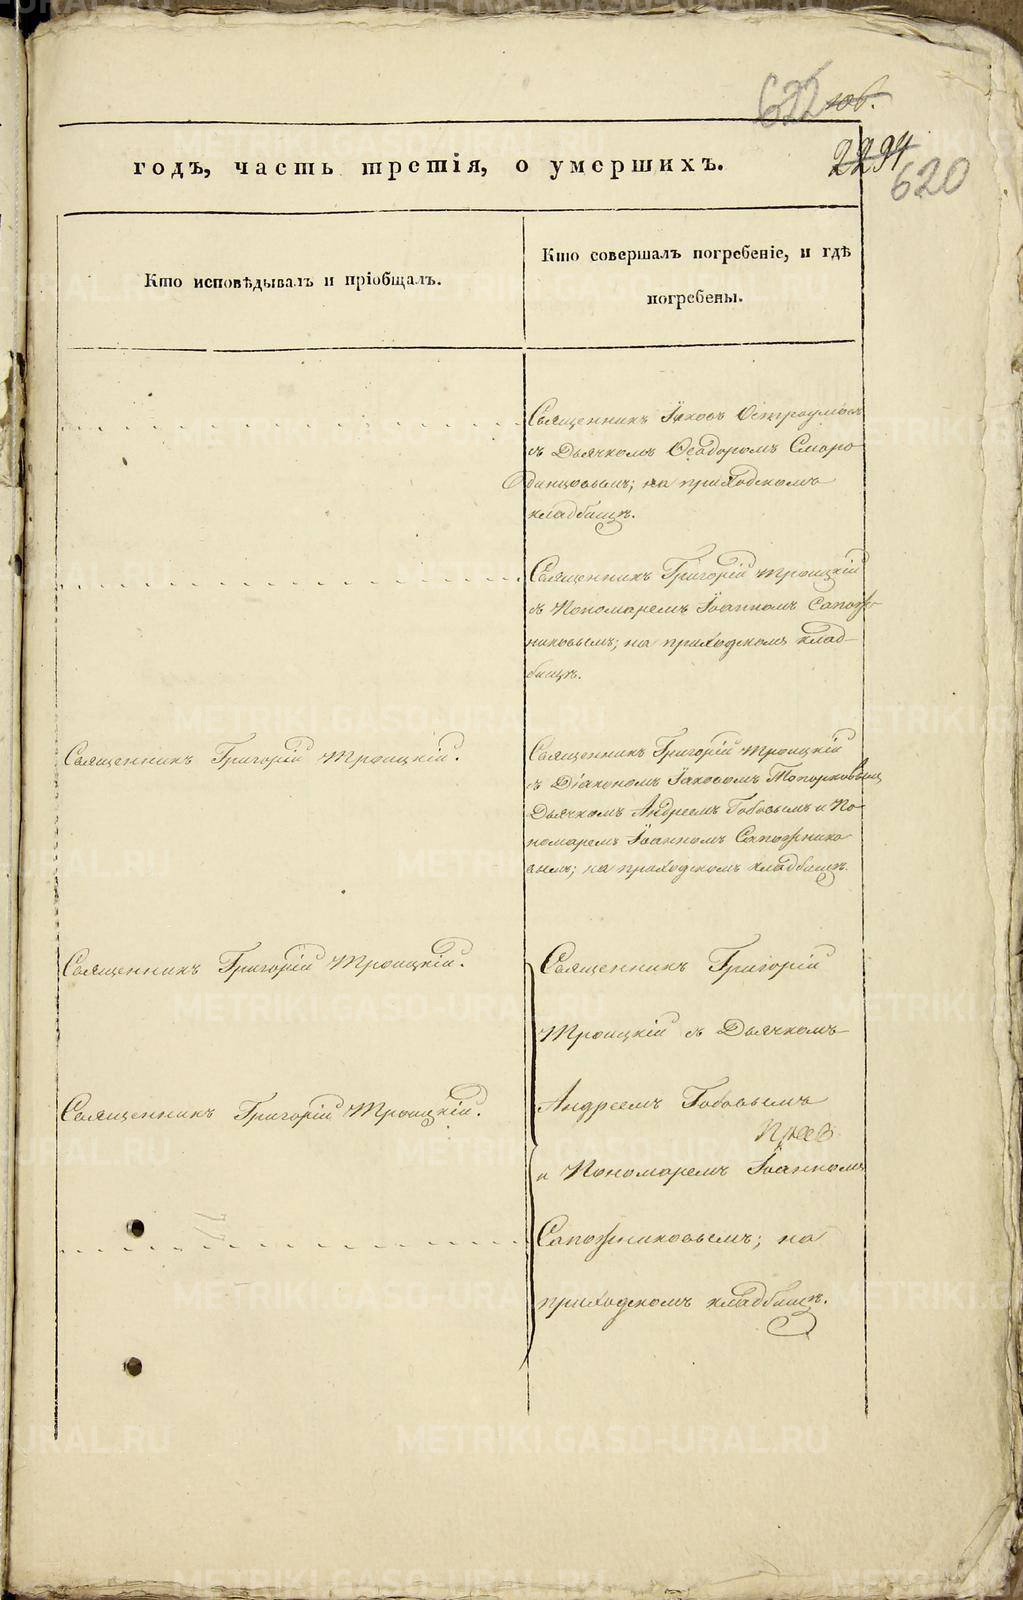 622 106.
2294
620
годъ, часть третія, о умершихъ.
Кто исповѣдывалъ и пріобщалъ.
Кто совершалъ погребеніе, и гдѣ
погребены.
Священникъ Іяковъ Остроумовъ
съ Дьячкомъ Ѳеодоромъ Сморо
динцовымъ; на приходскомъ
кладбищѣ.
Священникъ Григорій Троицкій
съ Пономаремъ Іоанномъ Сапож-
никовымъ; на приходскомъ клад-
бищѣ.
Священникъ Григорій Троицкій.
Священникъ Григорій Троицкій
съ Діакономъ Іаковомъ Топорковымъ
Дьячкомъ Андреемъ Бобовымъ и По-
номаремъ Іоанномъ Сапожнико
вымъ; на приходскомъ кладбищѣ.
Священникъ Григорій Троицкій.
Священникъ Григорій
Троицкій съ Дьячкомъ
Священникъ Григорій Троицкій.
Андреемъ Бобовымъ
и Пономаремъ Іоанномъ
Сапожниковымъ; на
приходскомъ кладбищѣ.
METRIKI.GASO-URAL.RU